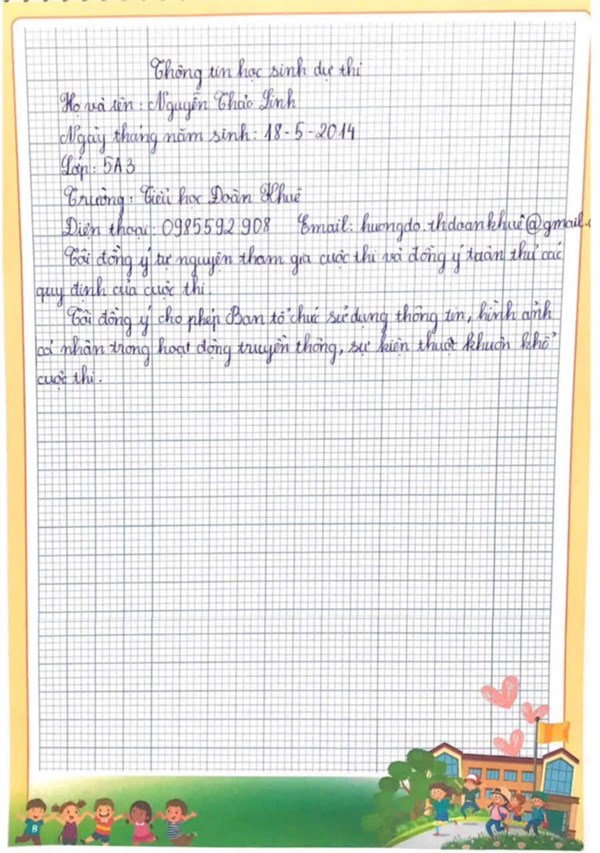 Thông tin học sinh dự thi
Họ và tên: Nguyễn Thảo Linh
Ngày tháng năm sinh: 18-5-2014
Lớp: 5A3
Trường: Tiểu học Doàn Khuê
Diện thoại: 0985592908 Email: huongdo.thdoankhuê@gmail.c
Tôi đồng ý tự nguyện tham gia cuộc thi và đồng ý tuân thủ các
quy định của cuộc thi.
Tôi đồng ý cho phép Ban tổ chức sử dụng thông tin, hình ảnh
cá nhân trong hoạt động truyền thông, sự kiện thuột khuôn khổ
cuộc thi.